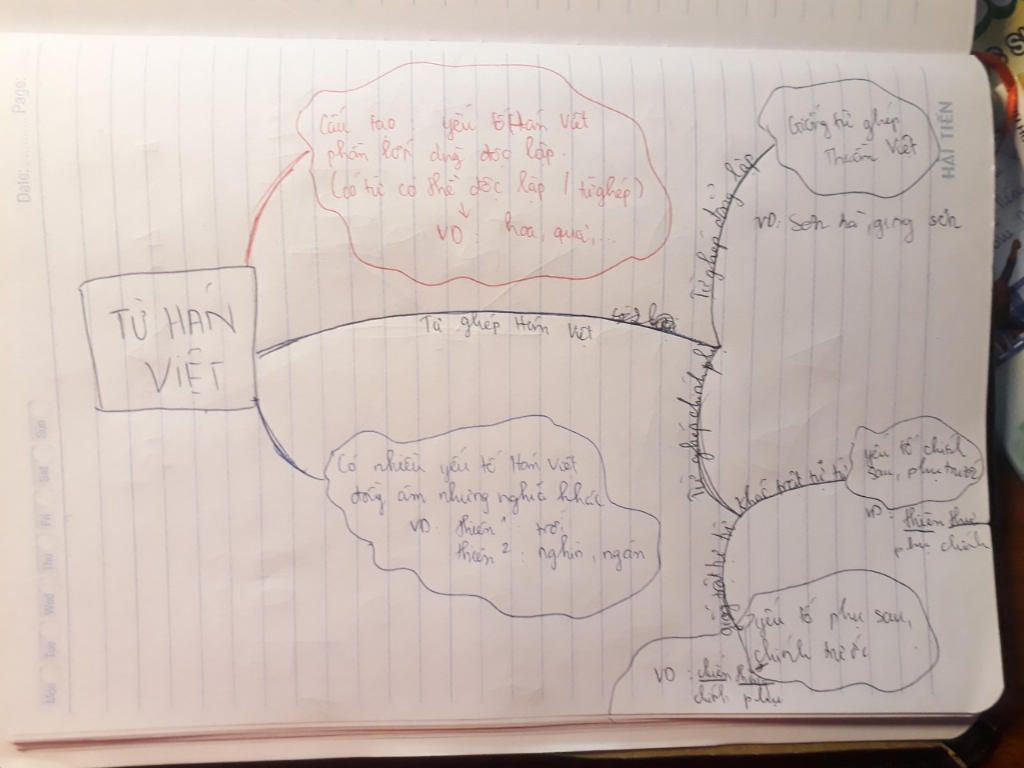 Page:
Date:
HẢI TIẾN
Mon Tue Wed Thu Fri Sat Sun
TỪ HÁN
VIỆT
Cấu tạo: yếu tố Hán Việt
phần lớn độc lập.
(có từ có thể độc lập / từ ghép)
VD: hoa, quả,...
Từ ghép Hán Việt
Từ ghép đẳng lập
Giống từ ghép
Thuần Việt
VD: Sơn hà, giang sơn
Từ ghép chính phụ
khác trật tự từ
yếu tố chính
sau, phụ trước
VD: thiên thư
phụ chính
giống trật tự từ
yếu tố phụ sau,
chính trước
VD: chiến
chính phụ
Có nhiều yếu tố Hán Việt
đồng âm nhưng nghĩa khác
VD: thiên 1: trời
thiên 2: nghìn, ngàn